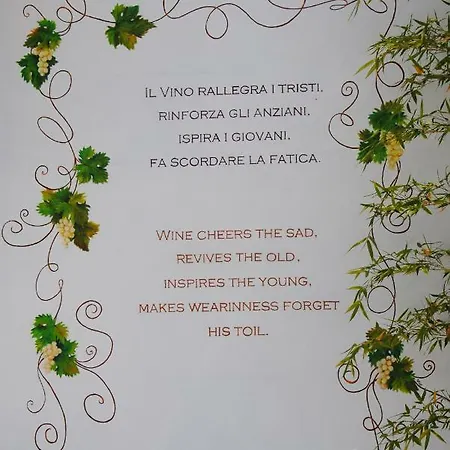 Il Vino rallegra i tristi,
rinforza gli anziani,
ispira i giovani,
fa scordare la fatica.
Wine cheers the sad,
revives the old,
inspires the young,
makes wearinness forget
his toil.